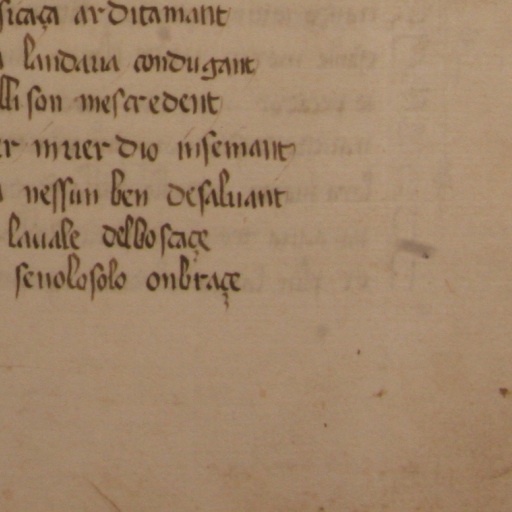 sicaça arditamant
landaua condugant
lli son mescredent
er inuer dio insemant
nessun ben desaluant
lauale delboscaçe
seuolosolo onbraçe